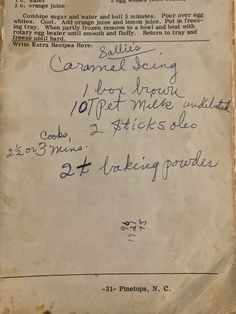 1 c. water
2 egg whites
1 c. orange juice
Combine sugar and water and boil 5 minutes. Pour over egg
whites. Cool. Add orange juice and lemon juice. Put in freez-
ing tray. When partly frozen remove to a bowl and beat with
rotary egg beater until smooth and fluffy. Return to tray and
freeze until hard.
Write Extra Recipes Here:
Sallie's
Caramel Icing
1 box brown
10 T pet milk undiluted
2 sticks oleo
Cook,
2½ or 3 mins.
2 t baking powder
-31- Pinetops, N. C.